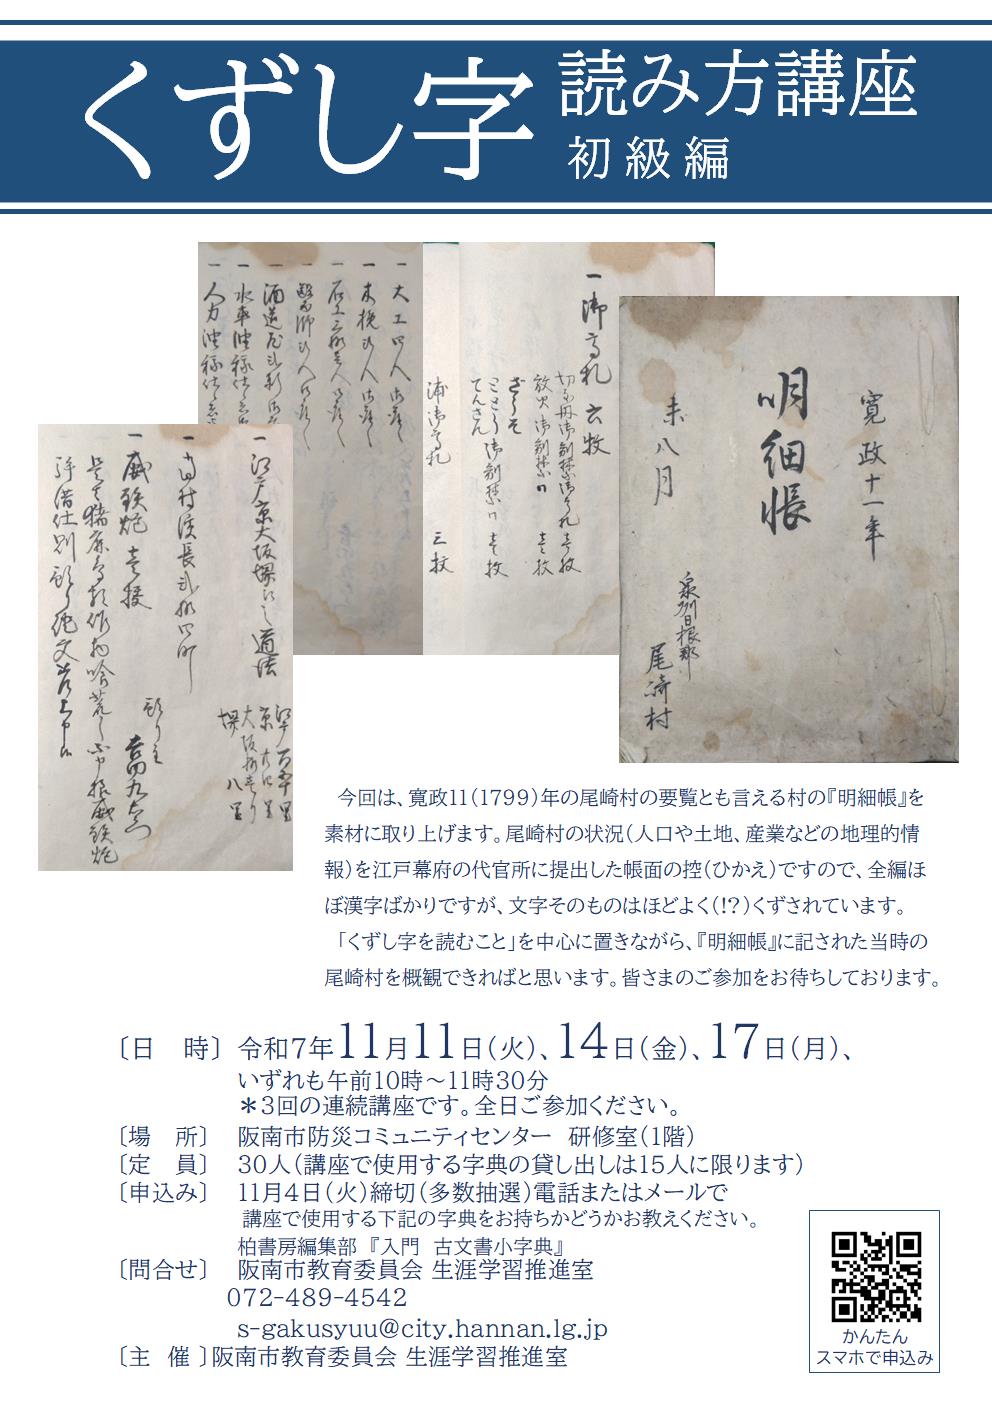 くずし字 読み方講座
初級編
寛政十一年
明細帳
未八月
泉州日根郡
尾崎村
一御高札 六枚
浦御高札 三枚
一大工四人
一木挽
一江戸京大坂堺に之道法
一威鉄炮
今回は、寛政11(1799)年の尾崎村の要覧とも言える村の『明細帳』を
素材に取り上げます。尾崎村の状況(人口や土地、産業などの地理的情
報)を江戸幕府の代官所に提出した帳面の控(ひかえ)ですので、全編ほ
ぼ漢字ばかりですが、文字そのものはほどよく(!?)くずされています。
「くずし字を読むこと」を中心に置きながら、『明細帳』に記された当時の
尾崎村を概観できればと思います。皆さまのご参加をお待ちしております。
〔日　時〕 令和7年11月11日(火)、14日(金)、17日(月)、
いずれも午前10時～11時30分
＊3回の連続講座です。全日ご参加ください。
〔場　所〕 阪南市防災コミュニティセンター 研修室(1階)
〔定　員〕 30人(講座で使用する字典の貸し出しは15人に限ります)
〔申込み〕 11月4日(火)締切(多数抽選)電話またはメールで
講座で使用する下記の字典をお持ちかどうかお教えください。
柏書房編集部『入門 古文書小字典』
〔問合せ〕 阪南市教育委員会 生涯学習推進室
072-489-4542
s-gakusyuu@city.hannan.lg.jp
〔主　催〕阪南市教育委員会 生涯学習推進室
かんたん
スマホで申込み